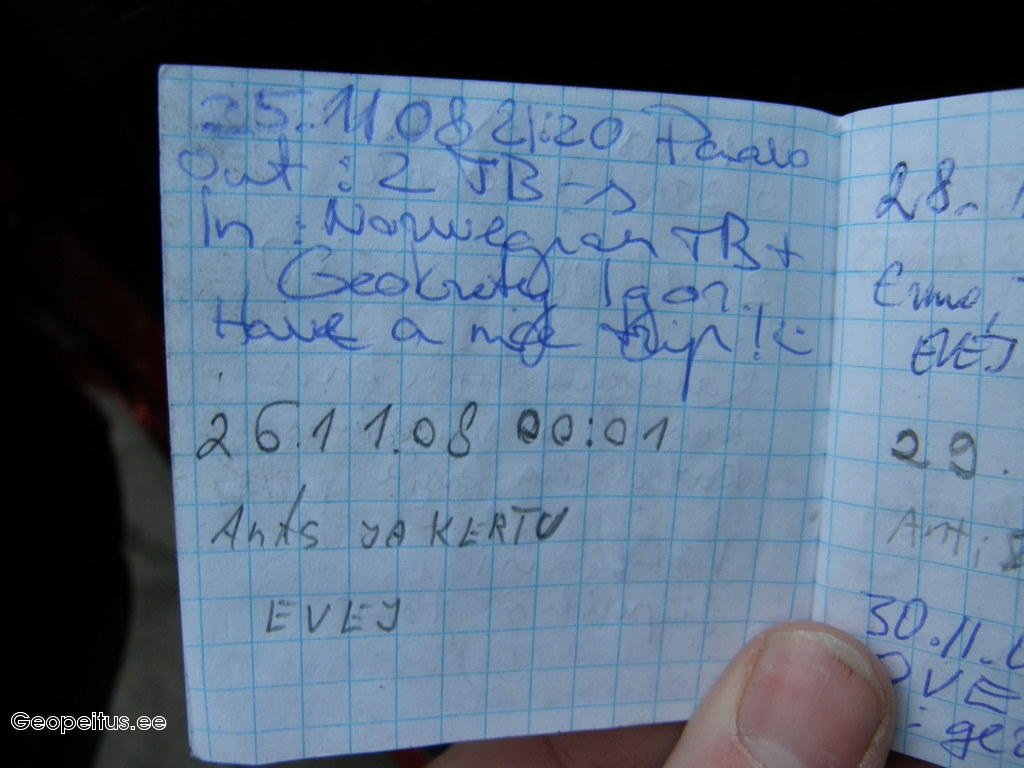 25.11.08 21:20 Paavo
Out : 2 TB-s
In : Norwegian TB +
Geokrety Igor.
Have a nice trip! (:
26.11.08 00:01
Ants JA KERTU
EVEJ
28.
Ermo,
EVEJ
29.
Ant
30.11.
Geopeitus.ee